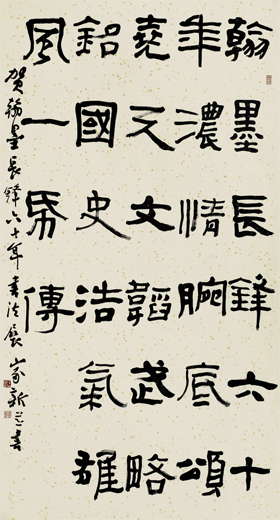 翰墨長鋒六十
年濃情腕底頌
堯天文韜武略
銘國史浩氣雄
風一傳
賀翰墨長鋒六十年書法展 家新并書